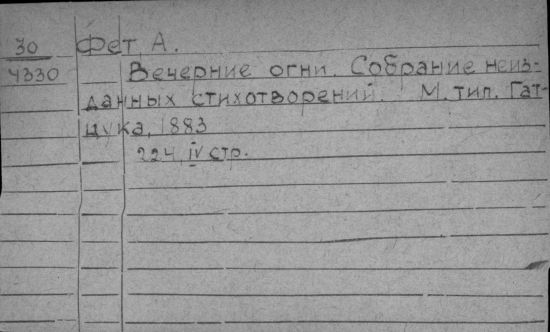 30 Фет А.
4330 Вечерние огни. Собрание неиз-
данных стихотворений. М. тип. Гат-
цука, 1883
224, IV стр.